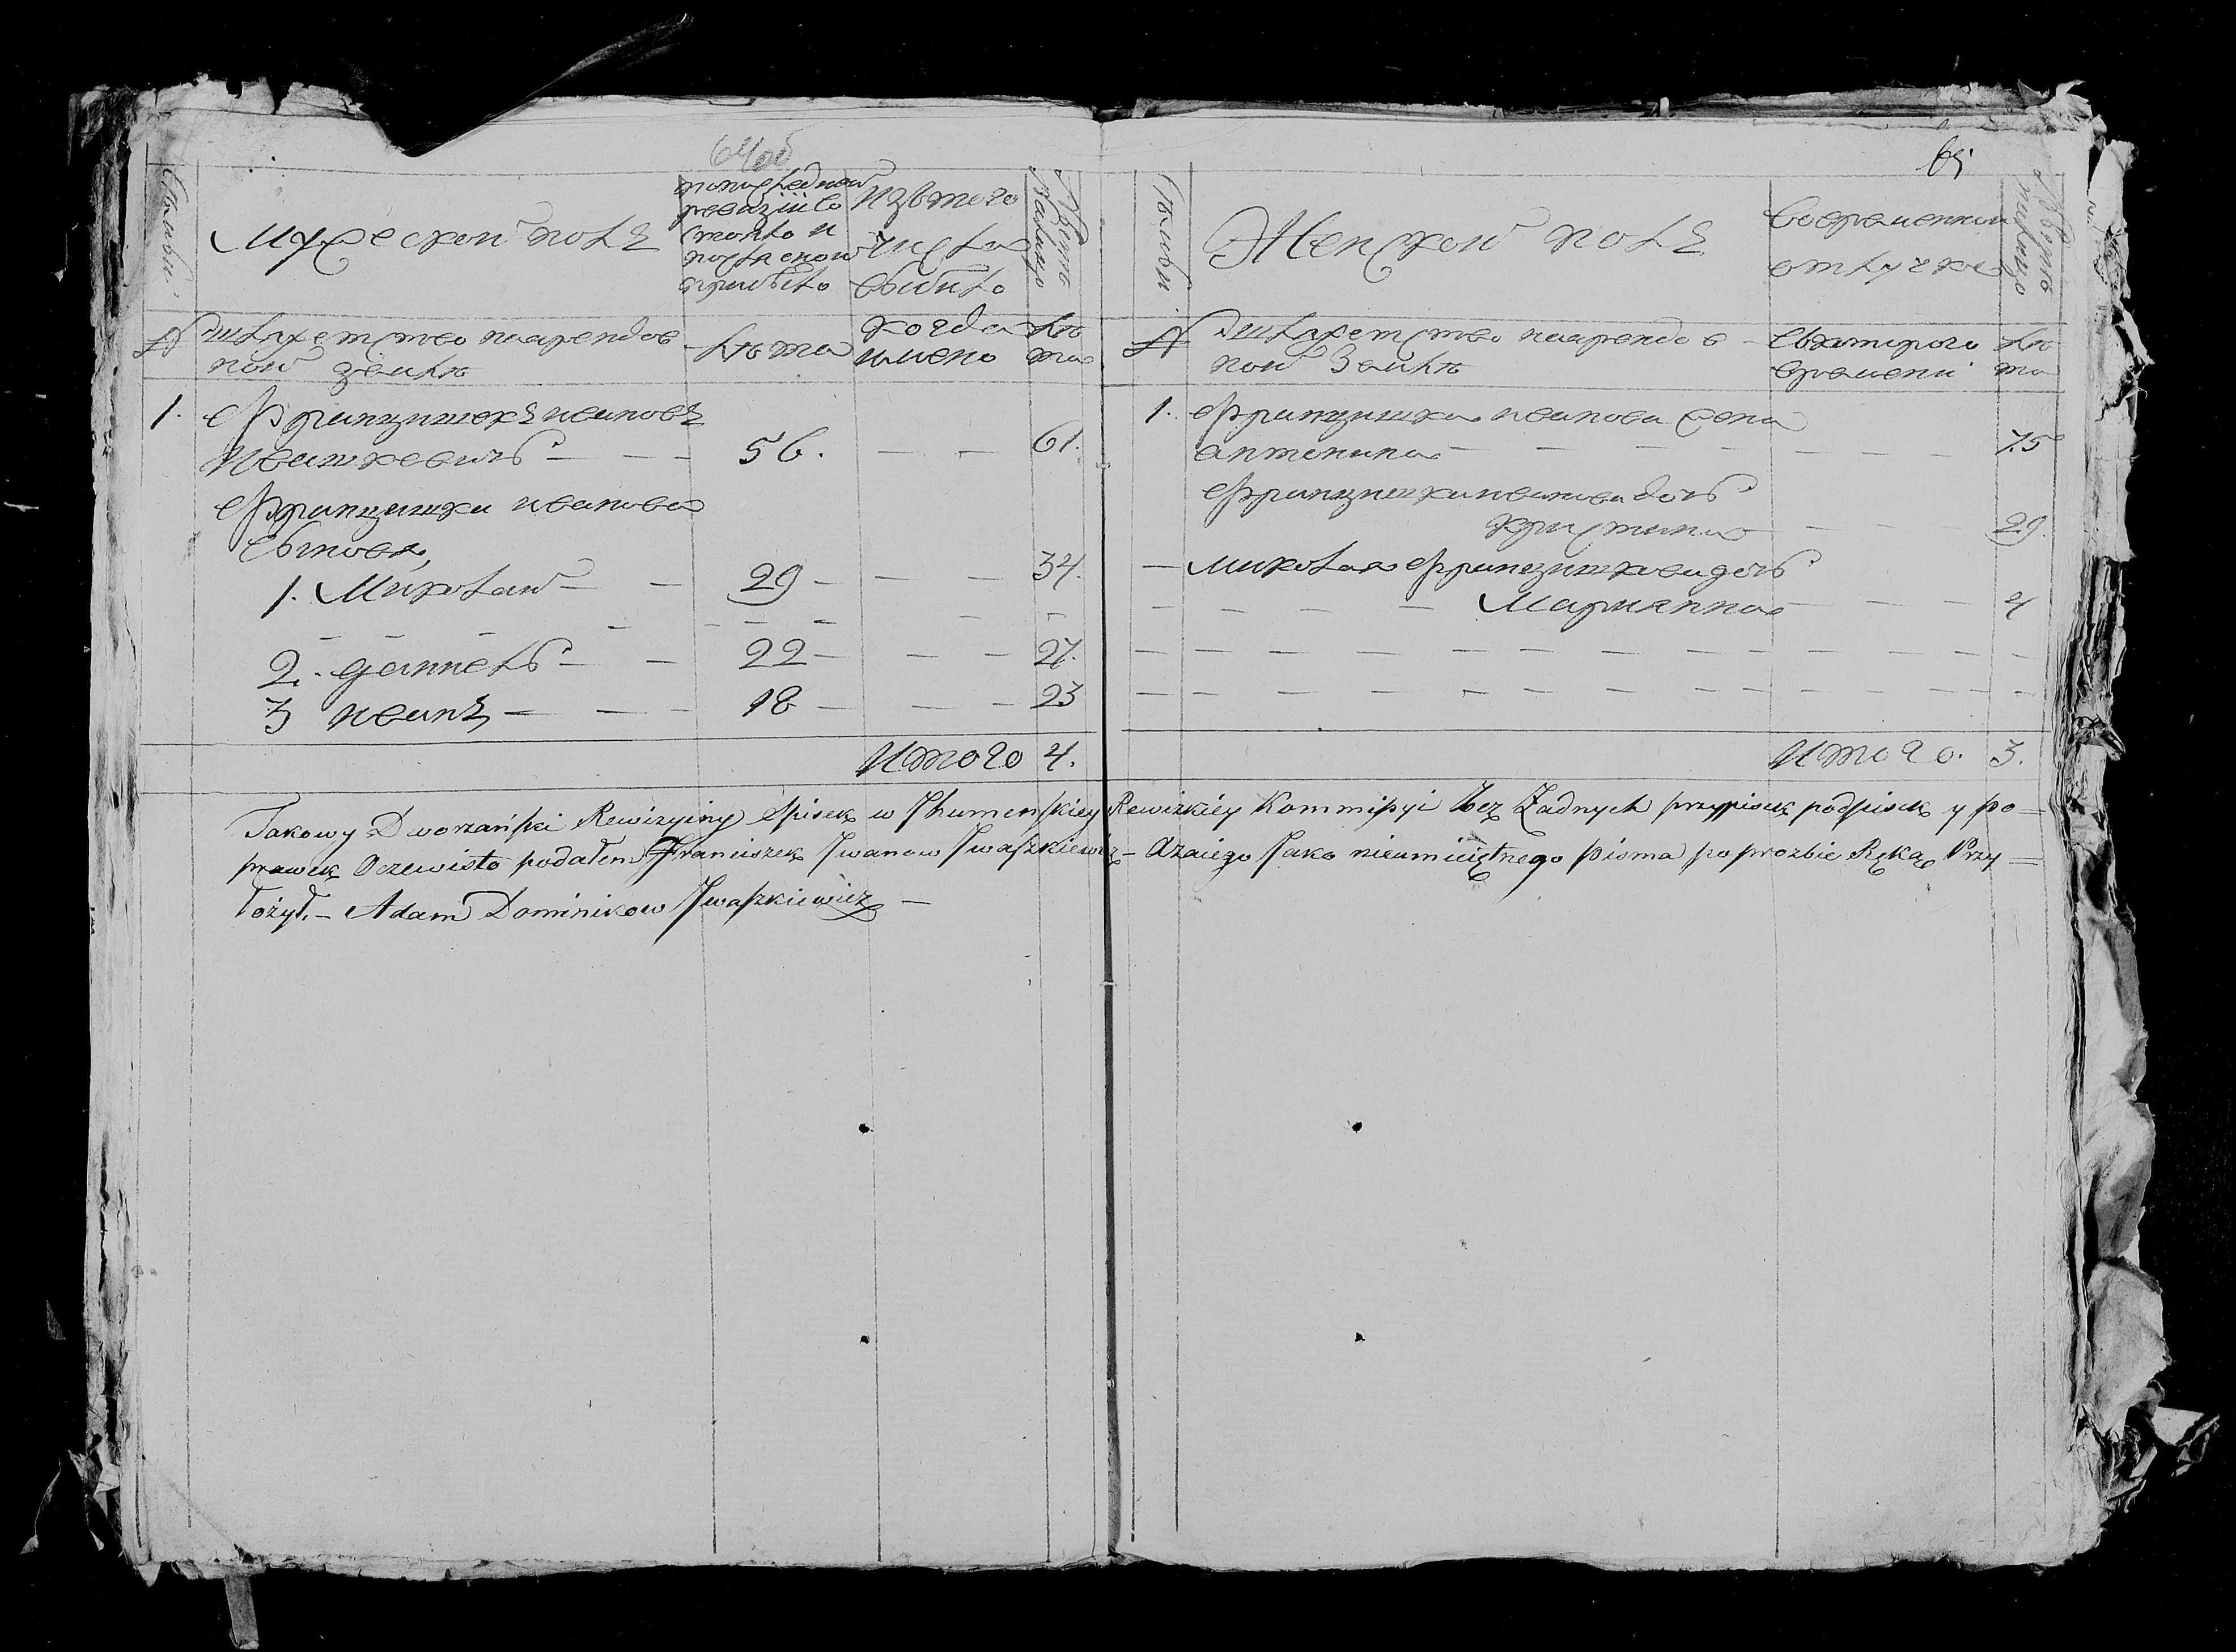 64об
Семьи
Мужеской полъ
попоследней
ревизіи со
стояло и
после оной
прибыло
Изътого
числа
выбыло
Ныне
налицо
№
Шляхетство наарендов
ной земле
лета
когда
имено
ле
та
1. Францишекъ ивановъ
Ивашкевичь - - - 56. - - 61.
Францишка иванова
Сыновя,
1. Миколай - - 29 - - - 34.
2. даниель - - 22 - - - 27.
3 иванъ - - - 18 - - - 23
Итого 4.
65
Семьи
Женской полъ
Вовременной
отлучке
Ныне
налицо
№
Шляхетство наарендов -
ной Земле
Скоторого
времени
ле
та
1. Францишка иванова жена
антонина - - - - - - 75
Францишка иванова дочь
кристина - - 29.
- миколая Францишкова дочь
- - - - Марианна - - - 4
Итого. 3.
Takowy Dworzański Rewizyiny Spisek w Jhumenskiey Rewizkiey Kommissyi bez Żadnych przypisek podpisek y po=
prawek Oczewisto podałem Franciszek Jwanow Jwaszkiewicz - Azaiego Jako nieumieiętnego pisma po prozbie Rękę Przy=
łożył. - Adam Dominikow Jwaszkiewicz -